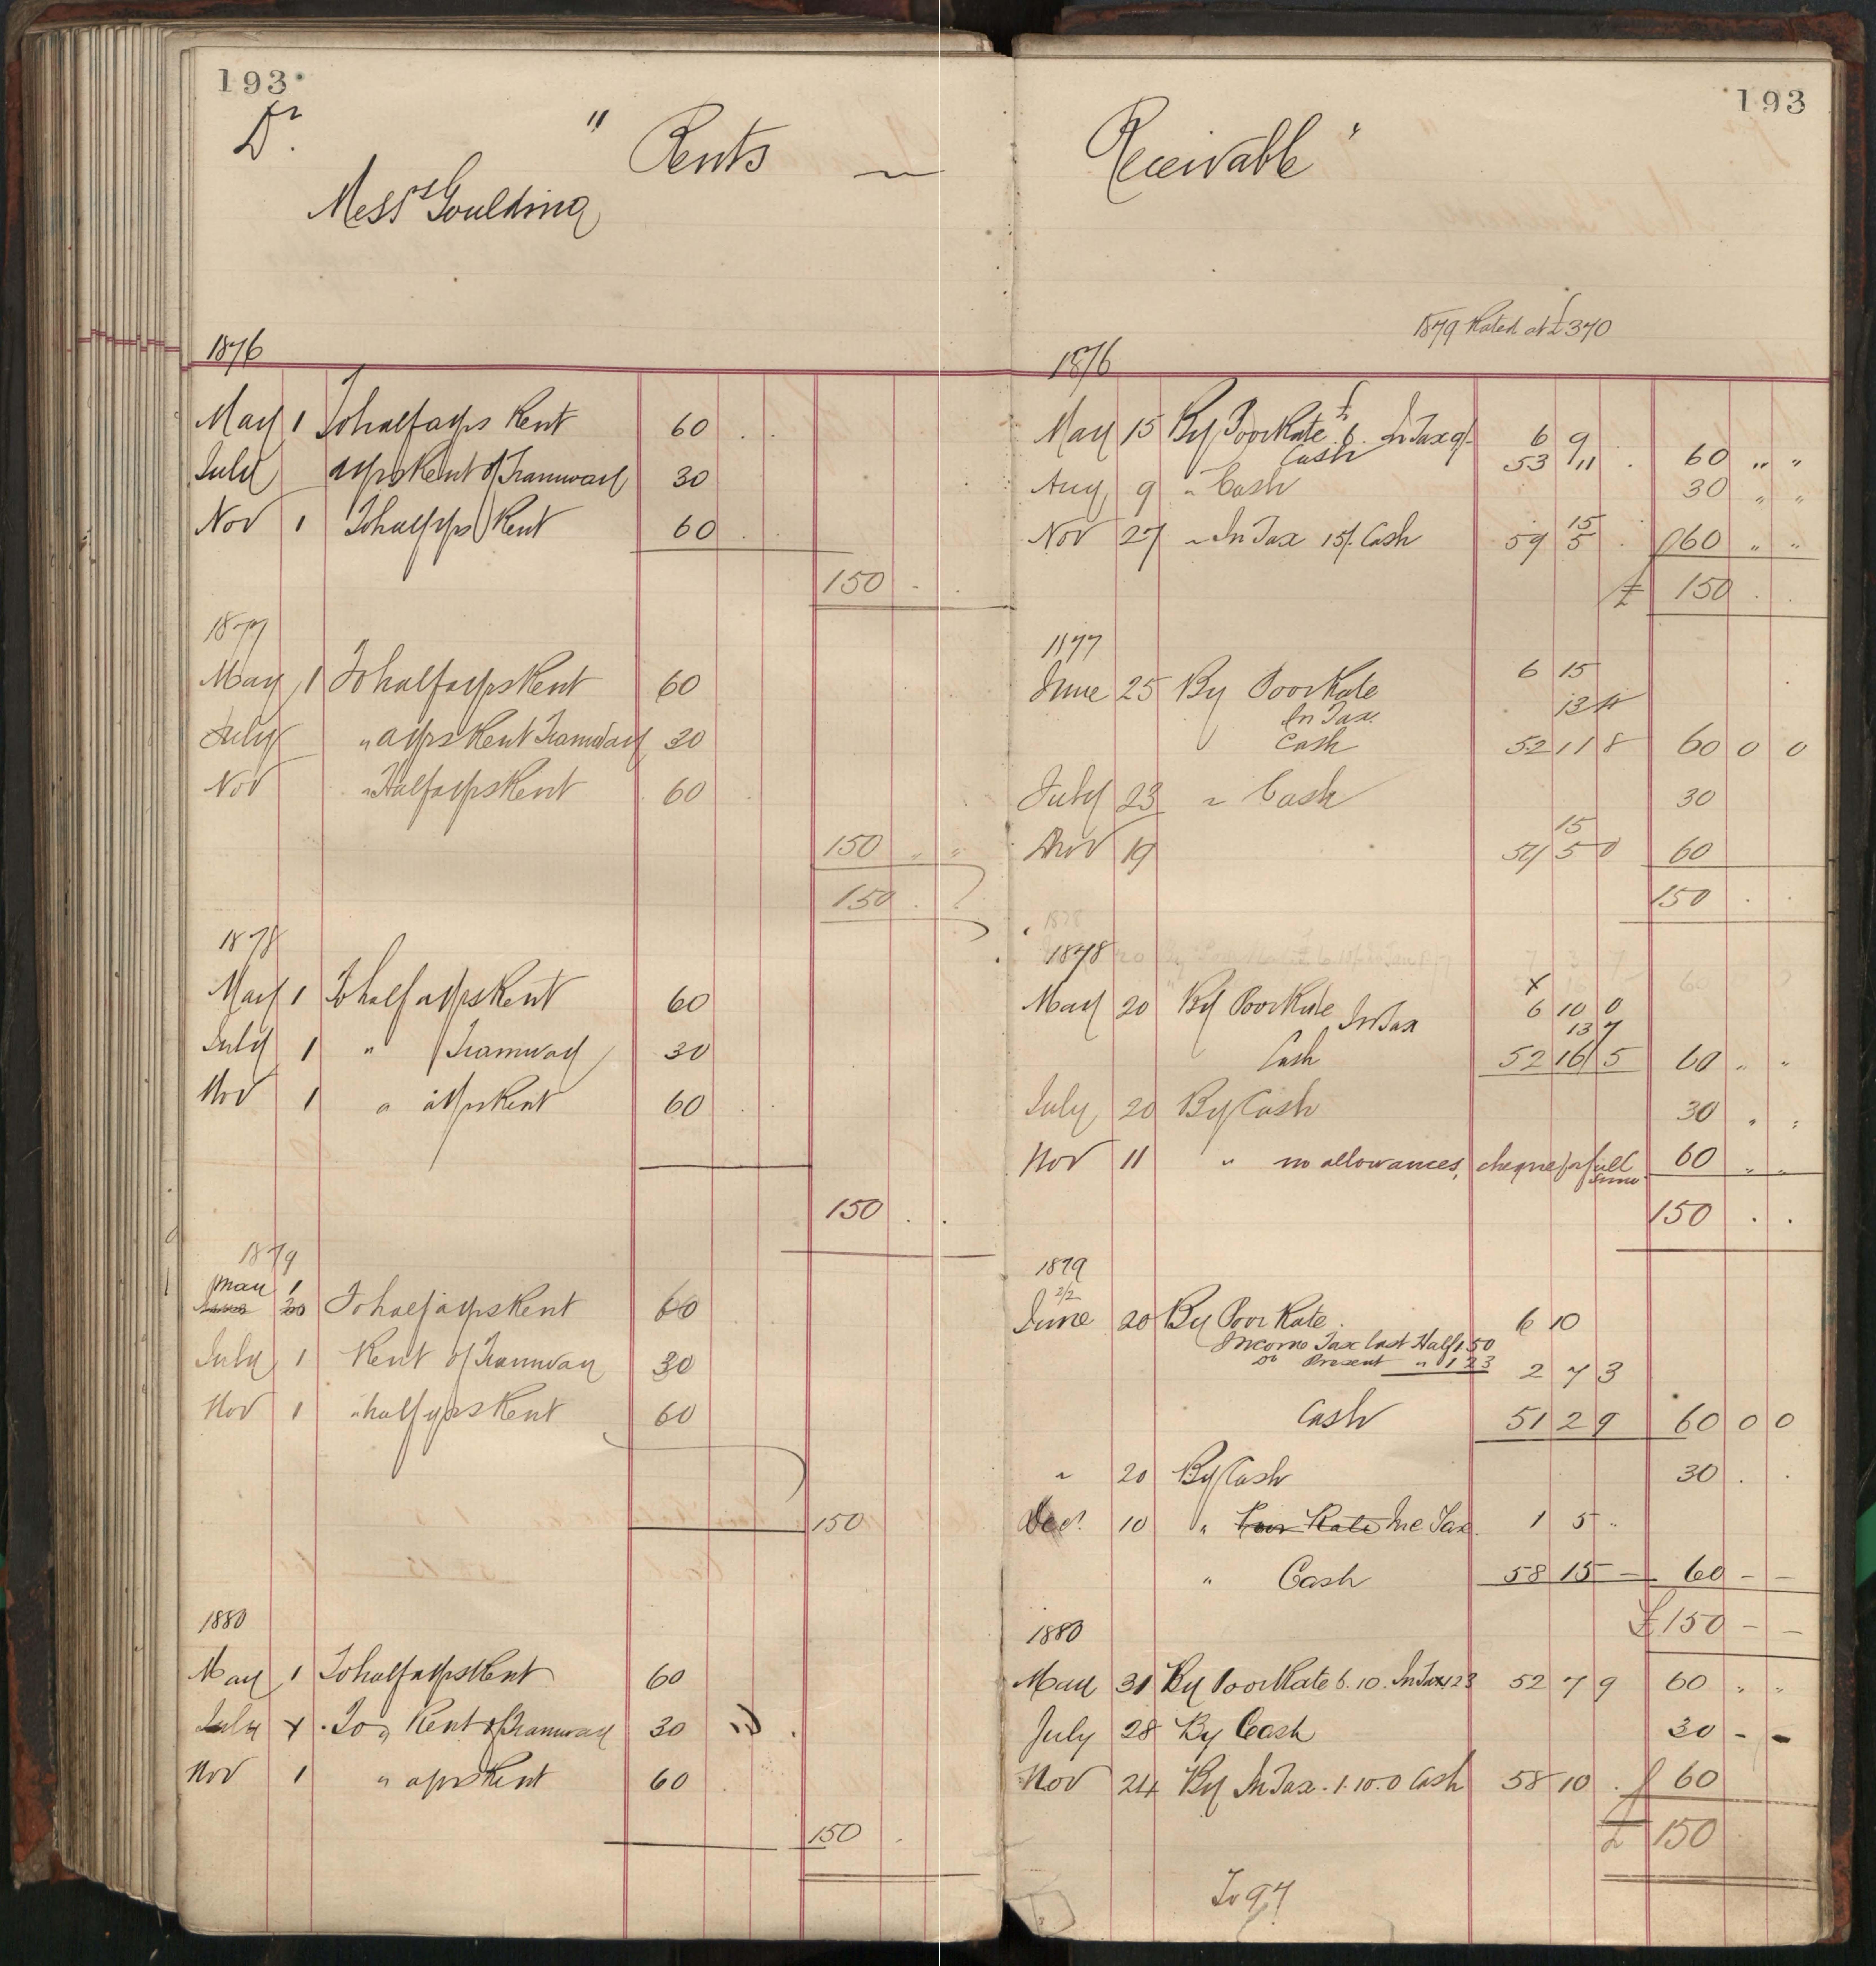 193
Dr.
" Rents ~
Messrs Goulding
1876
May 1 To half a yrs Rent 60 . .
July a yrs Rent of Tramway 30
Nov 1 To half yrs Rent 60 . .
150 . .
1877
May 1 To half a yrs Rent 60
July " a yrs Rent Tramway 30
Nov " Half a yrs Rent 60
150 " "
150 . .
1878
May 1 To half a yrs Rent 60
July 1 " Tramway 30
Nov 1 " a yrs Rent 60 . .
150 . .
1879
May 1
30 To half a yrs Rent 60
July 1 Rent of Tramway 30
Nov 1 " half yrs Rent 60
150
1880
May 1 To half a yrs Rent 60
July 1 To " Rent of Tramway 30 " .
Nov 1 " a yrs Rent 60 .
150 .
193
Receivable "
1879 Rated at £370
1876
May 15 By Poor Rate £6. In Tax 9/- 6 9
Cash 53 11 . 60 " "
Aug 9 " Cash 30 " "
Nov 27 " In Tax 15/. Cash 15
59 5 . 60 " "
£ 150 . .
1877
June 25 By Poor Rate 6 15
In Tax 13 4
Cash 52 11 8 60 0 0
July 23 " Cash 30
Nov 19 15
59 5 0 60
150 . .
1878
1878
May 20 By Poor Rate x 6 10 0
In Tax 13 7
Cash 52 16 5 60 " "
July 20 By Cash 30 " "
Nov 11 " no allowances, cheque for full 60 " "
150 . .
1879
2/2
June 20 By Poor Rate . 6 10
Income Tax last Half 1 5 0
Do Present " 1 2 3 2 7 3
Cash 51 2 9 60 0 0
" 20 By Cash 30 . .
Dec. 10 " Poor Rate Inc Tax. 1 5 "
" Cash 58 15 - 60 - -
£150 - -
1880
May 31 By Poor Rate 6.10. In Tax 1 2 3 52 7 9 60 " "
July 28 By Cash 30 - -
Nov 24 By In Tax . 1.10.0 Cash 58 10 . 60
£ 150
To 97